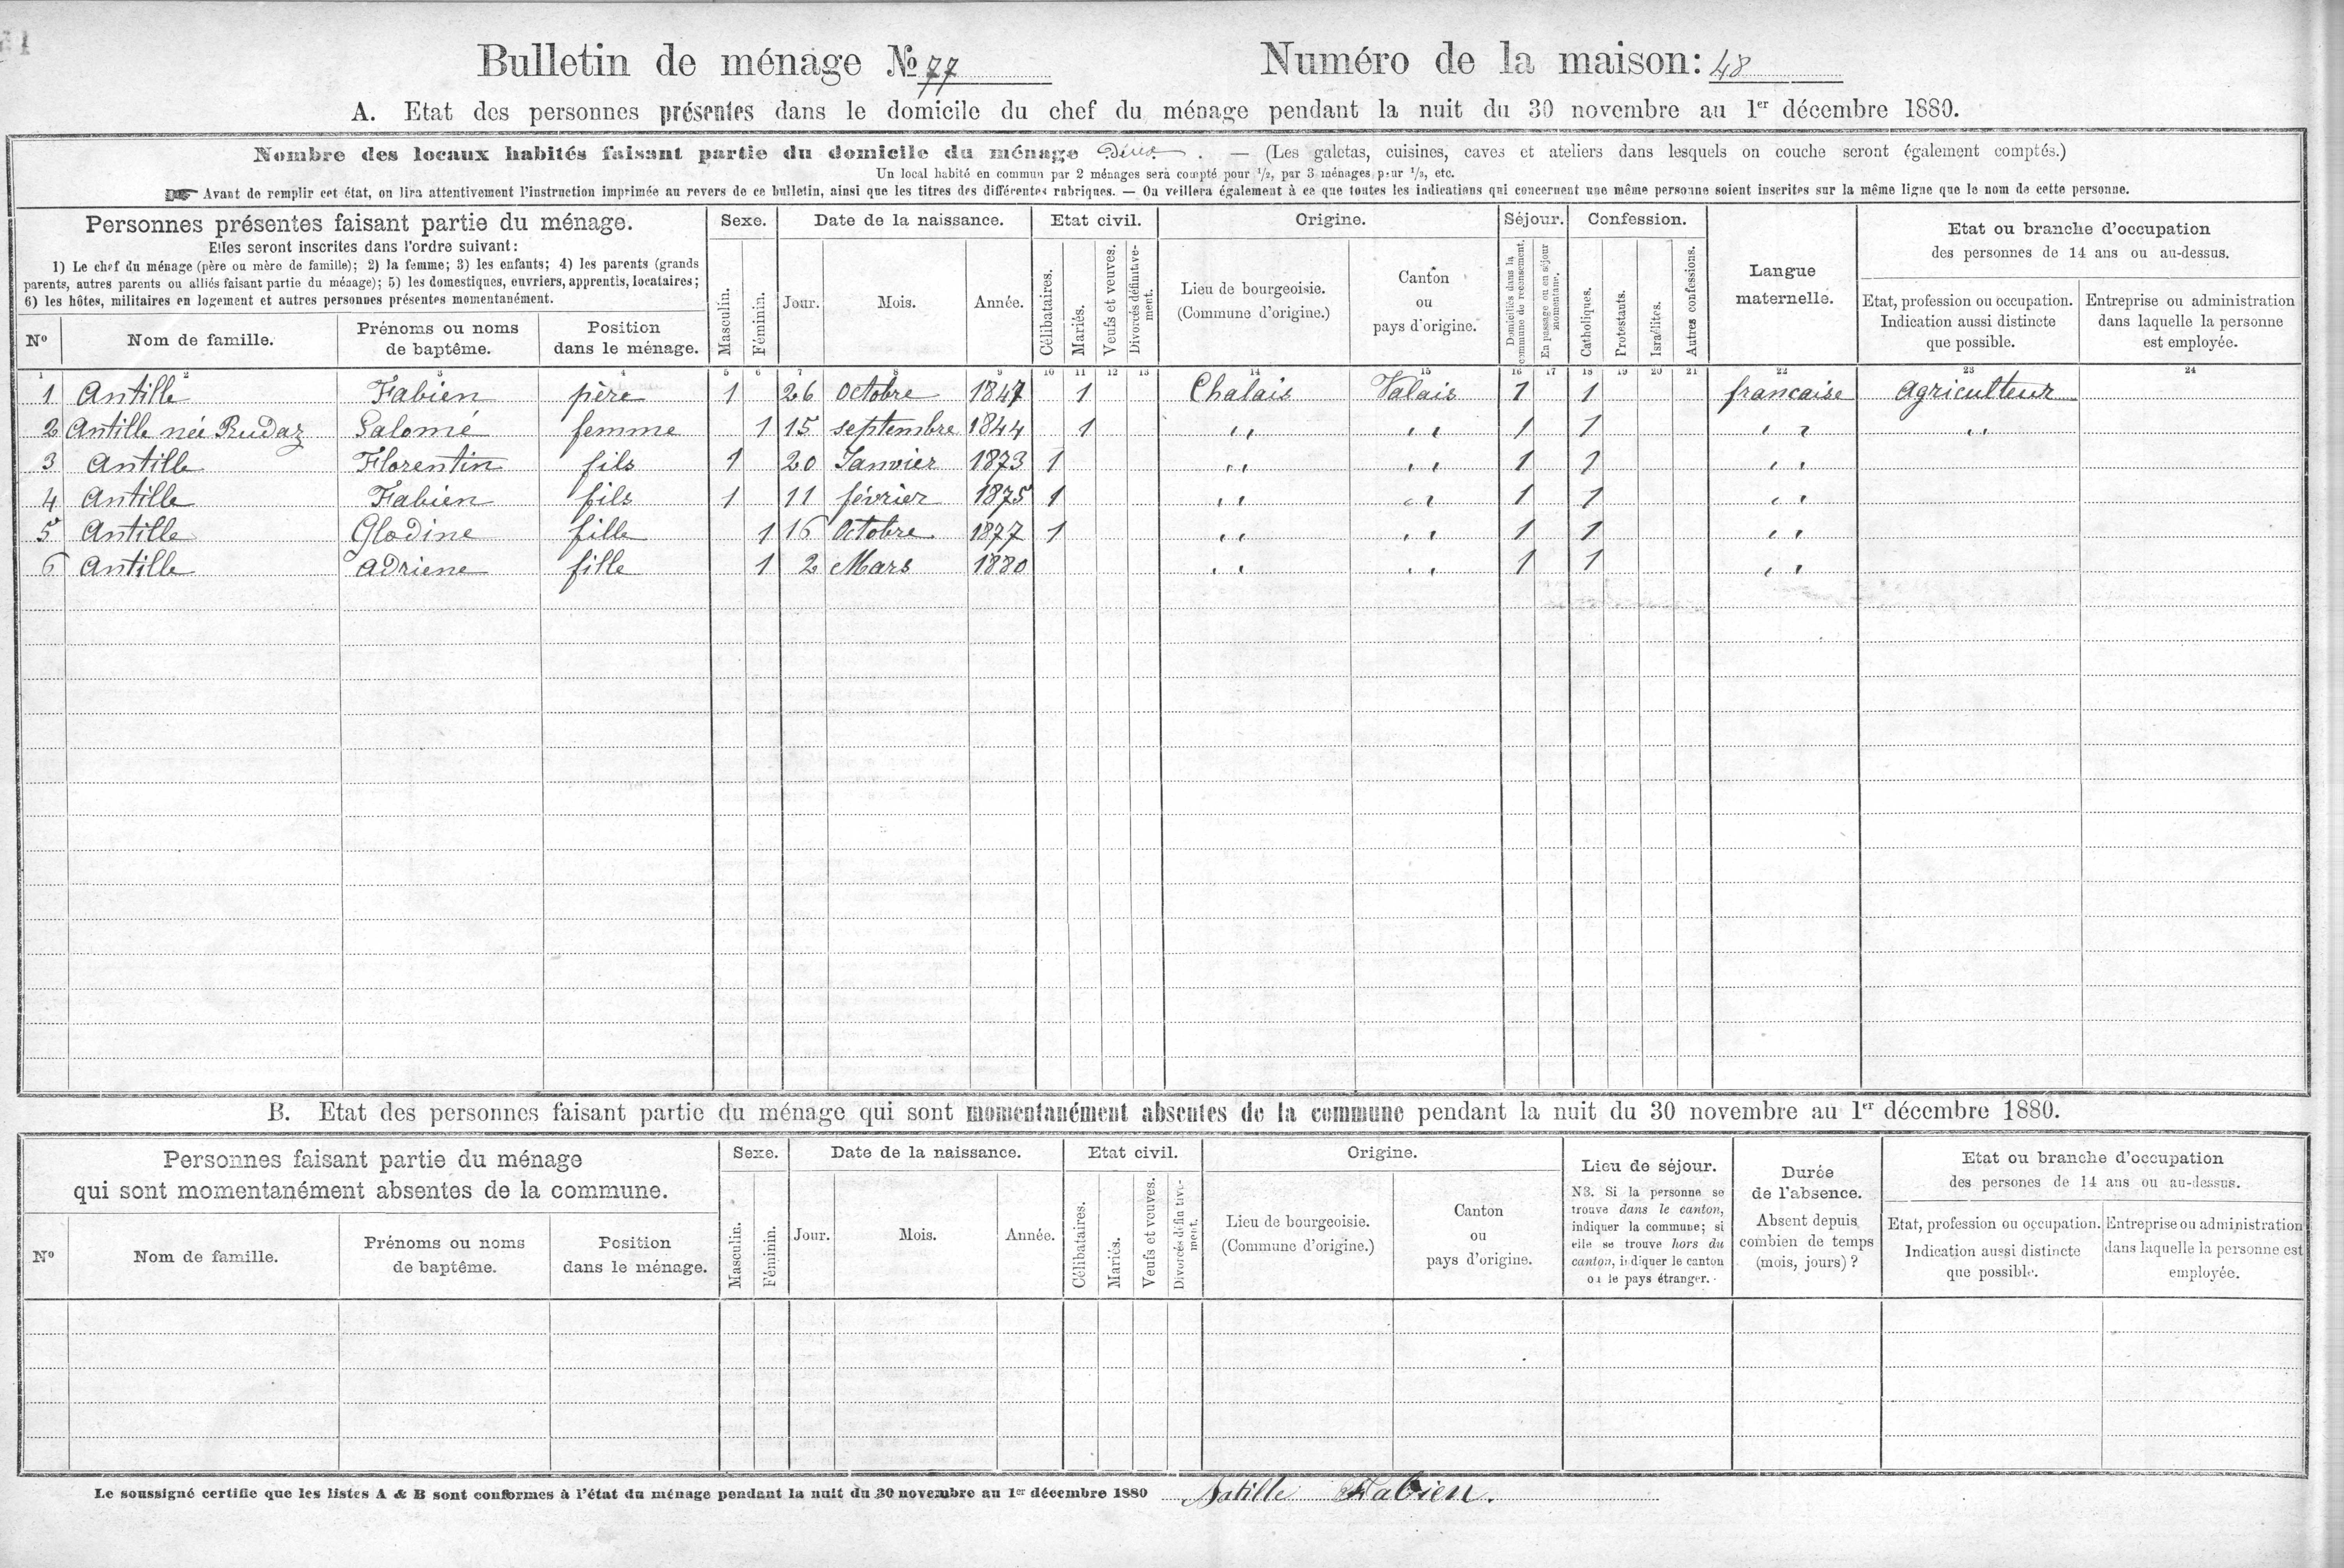 Bulletin de ménage No 77 Numéro de la maison: 48
A. Etat des personnes présentes dans le domicile du chef du ménage pendant la nuit du 30 novembre au 1er décembre 1880.
Nombre des locaux habités faisant partie du domicile du ménage Deux. — (Les galetas, cuisines, caves et ateliers dans lesquels on couche seront également comptés.)
Un local habité en commun par 2 ménages sera compté pour 1/2, par 3 ménages pour 1/3, etc.
Avant de remplir cet état, on lira attentivement l'instruction imprimée au revers de ce bulletin, ainsi que les titres des différentes rubriques. — On veillera également à ce que toutes les indications qui concernent une même personne soient inscrites sur la même ligne que le nom de cette personne.
Personnes présentes faisant partie du ménage.
Elles seront inscrites dans l'ordre suivant:
1) Le chef du ménage (père ou mère de famille); 2) la femme; 3) les enfants; 4) les parents (grands
parents, autres parents ou alliés faisant partie du ménage); 5) les domestiques, ouvriers, apprentis, locataires;
6) les hôtes, militaires en logement et autres personnes présentes momentanément.
No
Nom de famille.
Prénoms ou noms
de baptême.
Position
dans le ménage.
Sexe.
Masculin.
Féminin.
Date de la naissance.
Jour.
Mois.
Année.
Etat civil.
Célibataires.
Mariés.
Veufs et veuves.
Divorcés définitive-
ment.
Origine.
Lieu de bourgeoisie.
(Commune d'origine.)
Canton
ou
pays d'origine.
Séjour.
Domiciliés dans la
commune de recensement.
En passage ou en séjour
momentané.
Confession.
Catholiques.
Protestants.
Israélites.
Autres confessions.
Langue
maternelle.
Etat ou branche d'occupation
des personnes de 14 ans ou au-dessus.
Etat, profession ou occupation.
Indication aussi distincte
que possible.
Entreprise ou administration
dans laquelle la personne
est employée.
1 2 3 4 5 6 7 8 9 10 11 12 13 14 15 16 17 18 19 20 21 22 23 24
1 Antille Fabien père 1 26 Octobre 1847 1 Chalais Valais 1 1 francaise Agriculteur
2 Antille née Rudaz Salomé femme 1 15 septembre 1844 1 " " 1 1 " "
3 Antille Florentin fils 1 20 Janvier 1873 1 " " 1 1 "
4 Antille Fabien fils 1 11 février 1875 1 " " 1 1 "
5 Antille Glodine fille 1 16 Octobre 1877 1 " " 1 1 "
6 Antille Adriene fille 1 2 Mars 1880 " " 1 1 "
B. Etat des personnes faisant partie du ménage qui sont momentanément absentes de la commune pendant la nuit du 30 novembre au 1er décembre 1880.
Personnes faisant partie du ménage
qui sont momentanément absentes de la commune.
No
Nom de famille.
Prénoms ou noms
de baptême.
Position
dans le ménage.
Sexe.
Masculin.
Féminin.
Date de la naissance.
Jour.
Mois.
Année.
Etat civil.
Célibataires.
Mariés.
Veufs et veuves.
Divorcés définitive-
ment.
Origine.
Lieu de bourgeoisie.
(Commune d'origine.)
Canton
ou
pays d'origine.
Lieu de séjour.
NB. Si la personne se
trouve dans le canton,
indiquer la commune; si
elle se trouve hors du
canton, indiquer le canton
ou le pays étranger.
Durée
de l'absence.
Absent depuis
combien de temps
(mois, jours)?
Etat ou branche d'occupation
des persones de 14 ans ou au-dessus.
Etat, profession ou occupation.
Indication aussi distincte
que possible.
Entreprise ou administration
dans laquelle la personne est
employée.
Le soussigné certifie que les listes A & B sont conformes à l'état du ménage pendant la nuit du 30 novembre au 1er décembre 1880 Antille Fabien.